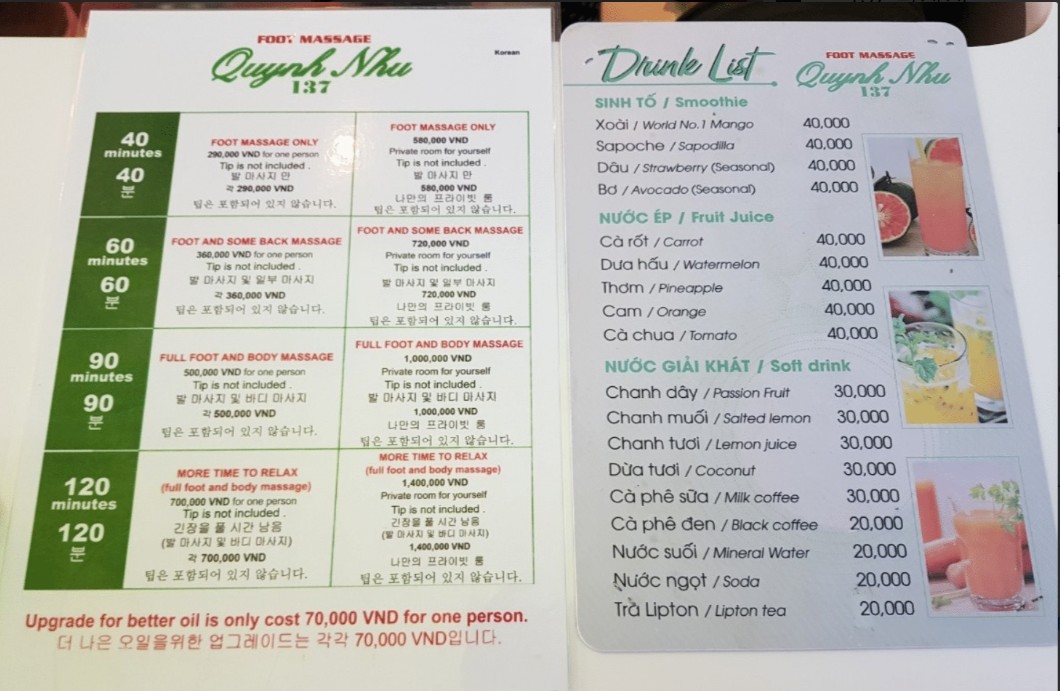 FOOT MASSAGE
Quynh Nhu
137
Korean
40
minutes
40
분
FOOT MASSAGE ONLY
290,000 VND for one person
Tip is not included .
발 마사지 만
각 290,000 VND
팁은 포함되어 있지 않습니다.
FOOT MASSAGE ONLY
580,000 VND
Private room for yourself
Tip is not included .
발 마사지 만
580,000 VND
나만의 프라이빗 룸
팁은 포함되어 있지 않습니다.
60
minutes
60
분
FOOT AND SOME BACK MASSAGE
360,000 VND for one person
Tip is not included .
발 마사지 및 일부 마사지
각 360,000 VND
팁은 포함되어 있지 않습니다.
FOOT AND SOME BACK MASSAGE
720,000 VND
Private room for yourself
Tip is not included .
발 마사지 및 일부 마사지
720,000 VND
나만의 프라이빗 룸
팁은 포함되어 있지 않습니다.
90
minutes
90
분
FULL FOOT AND BODY MASSAGE
500,000 VND for one person
Tip is not included .
발 마사지 및 바디 마사지
각 500,000 VND
팁은 포함되어 있지 않습니다.
FULL FOOT AND BODY MASSAGE
1,000,000 VND
Private room for yourself
Tip is not included .
발 마사지 및 바디 마사지
1,000,000 VND
나만의 프라이빗 룸
팁은 포함되어 있지 않습니다.
120
minutes
120
분
MORE TIME TO RELAX
(full foot and body massage)
700,000 VND for one person
Tip is not included .
긴장을 풀 시간 남음
(발 마사지 및 바디 마사지)
각 700,000 VND
팁은 포함되어 있지 않습니다.
MORE TIME TO RELAX
(full foot and body massage)
1,400,000 VND
Private room for yourself
Tip is not included .
긴장을 풀 시간 남음
(발 마사지 및 바디 마사지)
1,400,000 VND
나만의 프라이빗 룸
팁은 포함되어 있지 않습니다.
Upgrade for better oil is only cost 70,000 VND for one person.
더 나은 오일을위한 업그레이드는 각각 70,000 VND입니다.
Drink List
FOOT MASSAGE
Quynh Nhu
137
SINH TỐ / Smoothie
Xoài / World No.1 Mango 40,000
Sapoche / Sapodilla 40,000
Dâu / Strawberry (Seasonal) 40,000
Bơ / Avocado (Seasonal) 40,000
NƯỚC ÉP / Fruit Juice
Cà rốt / Carrot 40,000
Dưa hấu / Watermelon 40,000
Thơm / Pineapple 40,000
Cam / Orange 40,000
Cà chua / Tomato 40,000
NƯỚC GIẢI KHÁT / Soft drink
Chanh dây / Passion Fruit 30,000
Chanh muối / Salted lemon 30,000
Chanh tươi / Lemon juice 30,000
Dừa tươi / Coconut 30,000
Cà phê sữa / Milk coffee 30,000
Cà phê đen / Black coffee 20,000
Nước suối / Mineral Water 20,000
Nước ngọt / Soda 20,000
Trà Lipton / Lipton tea 20,000